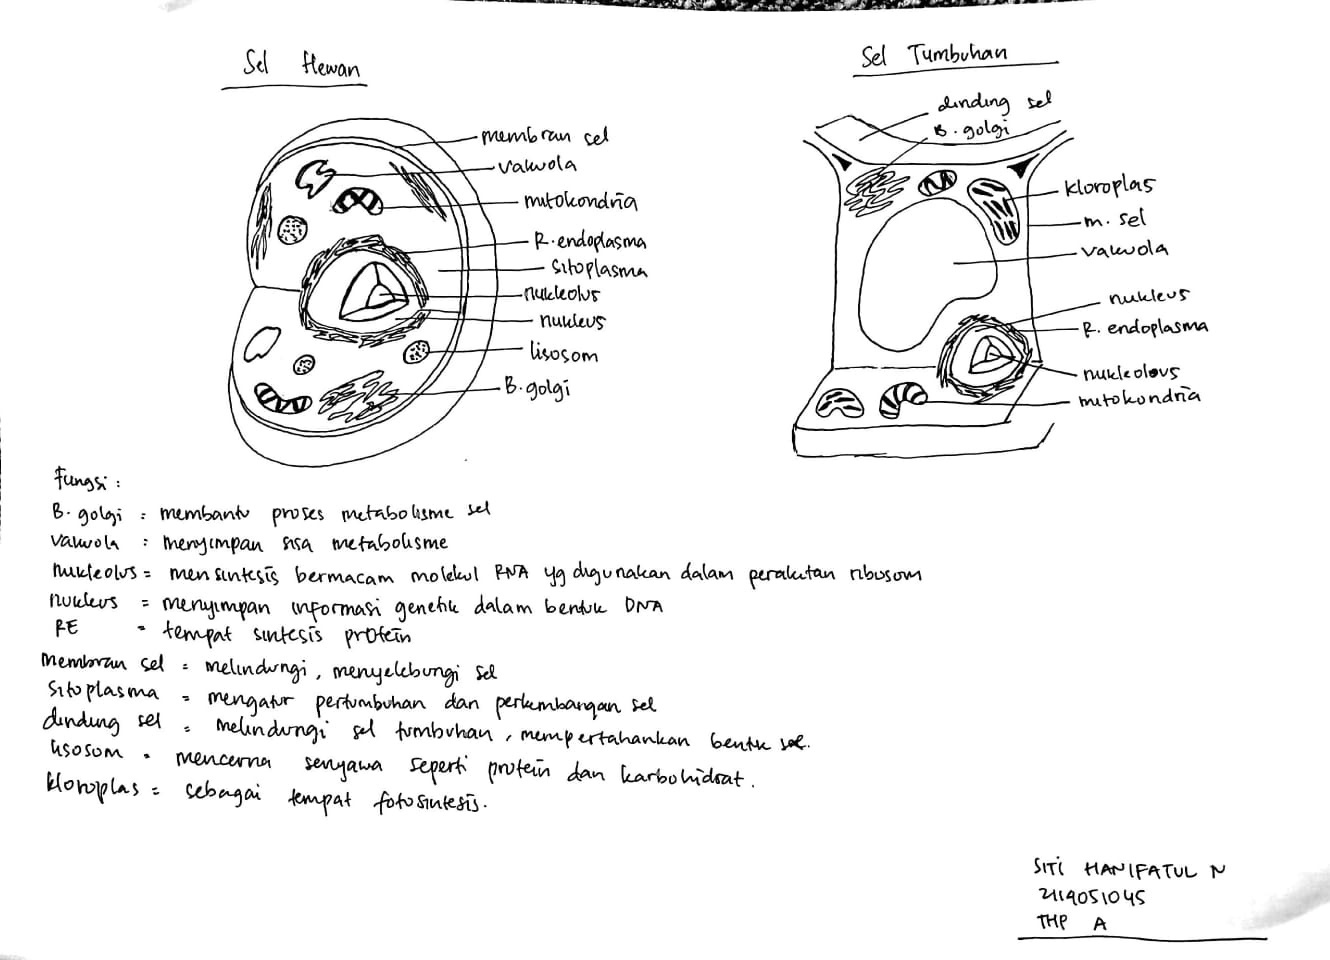 Sel Hewan
membran sel
vakuola
mitokondria
R. endoplasma
sitoplasma
nukleolus
nukleus
lisosom
B. golgi
Sel Tumbuhan
dinding sel
B. golgi
kloroplas
m. sel
vakuola
nukleus
R. endoplasma
nukleolous
mitokondria
Fungsi :
B. golgi : membantu proses metabolisme sel
vakuola : menyimpan sisa metabolisme
nukleolus = mensintesis bermacam molekul RNA yg digunakan dalam perakitan ribosom
nukleus = menyimpan informasi genetik dalam bentuk DNA
RE = tempat sintesis protein
Membran sel = melindungi, menyelebungi sel
Sitoplasma = mengatur pertumbuhan dan perkembangan sel
dinding sel = melindungi sel tumbuhan, mempertahankan bentuk sel.
lisosom = mencerna senyawa seperti protein dan karbohidrat.
kloroplas = sebagai tempat fotosintesis.
SITI HANIFATUL N
2114051045
THP A